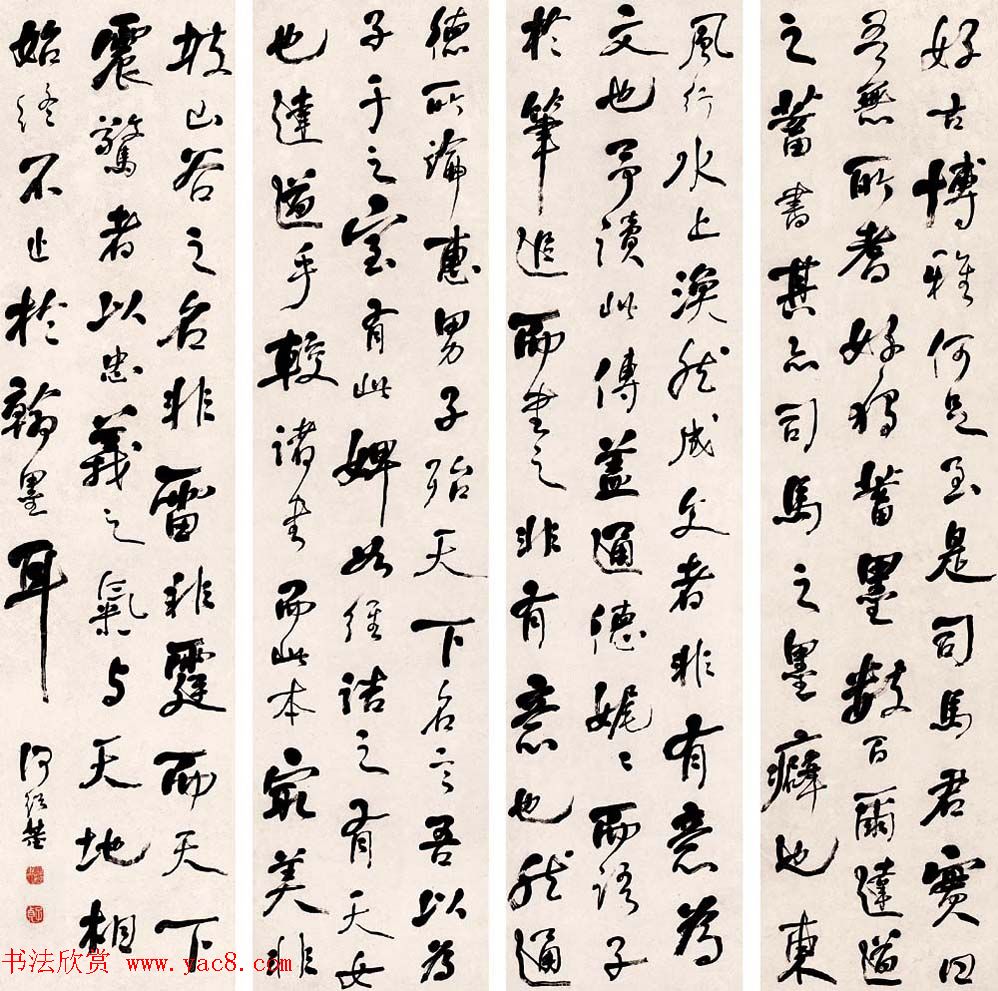 好古博雅何足至是司馬君實曰
吾無所耆好獨蓄墨數百爾達道
之蓄書甚亦司馬之墨癖也東
坡山谷之名非雷非霆而天下
震驚者以忠義之氣與天地相
始終不止於翰墨耳
風行水上渙然成文者非有意為
文也予讀此傳蓋通德娓娓而語子
於筆追而書之非有意也然通
德所論慧男子殆天下名言吾以為
子于之室有此婢如維詰之有天女
也達道手較諸書而此本最美非
何紹基
书法欣赏 www.yac8.com